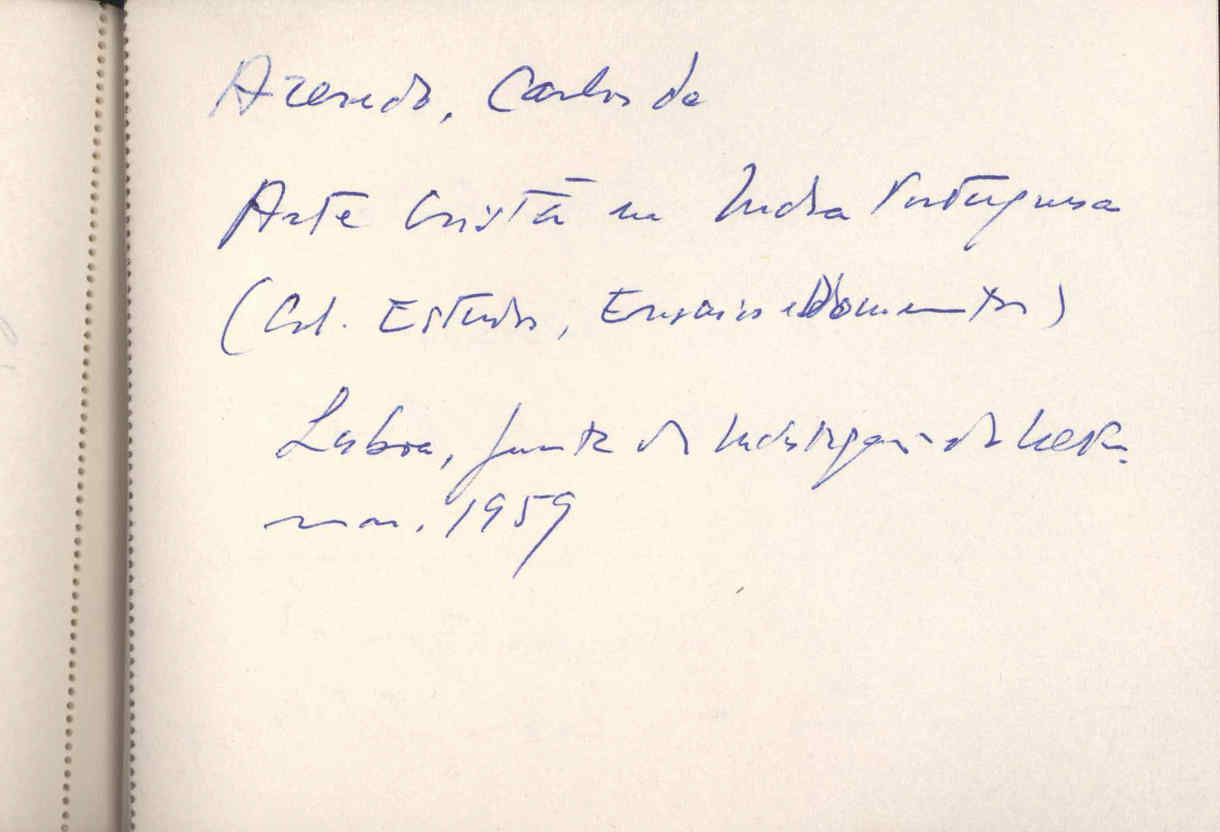 Azevedo, Carlos de
Arte Cristã na India Portuguesa
(Col. Estudos, Ensaios e Documentos)
Lisboa, Junta de Investigações do Ultra-
mar. 1959